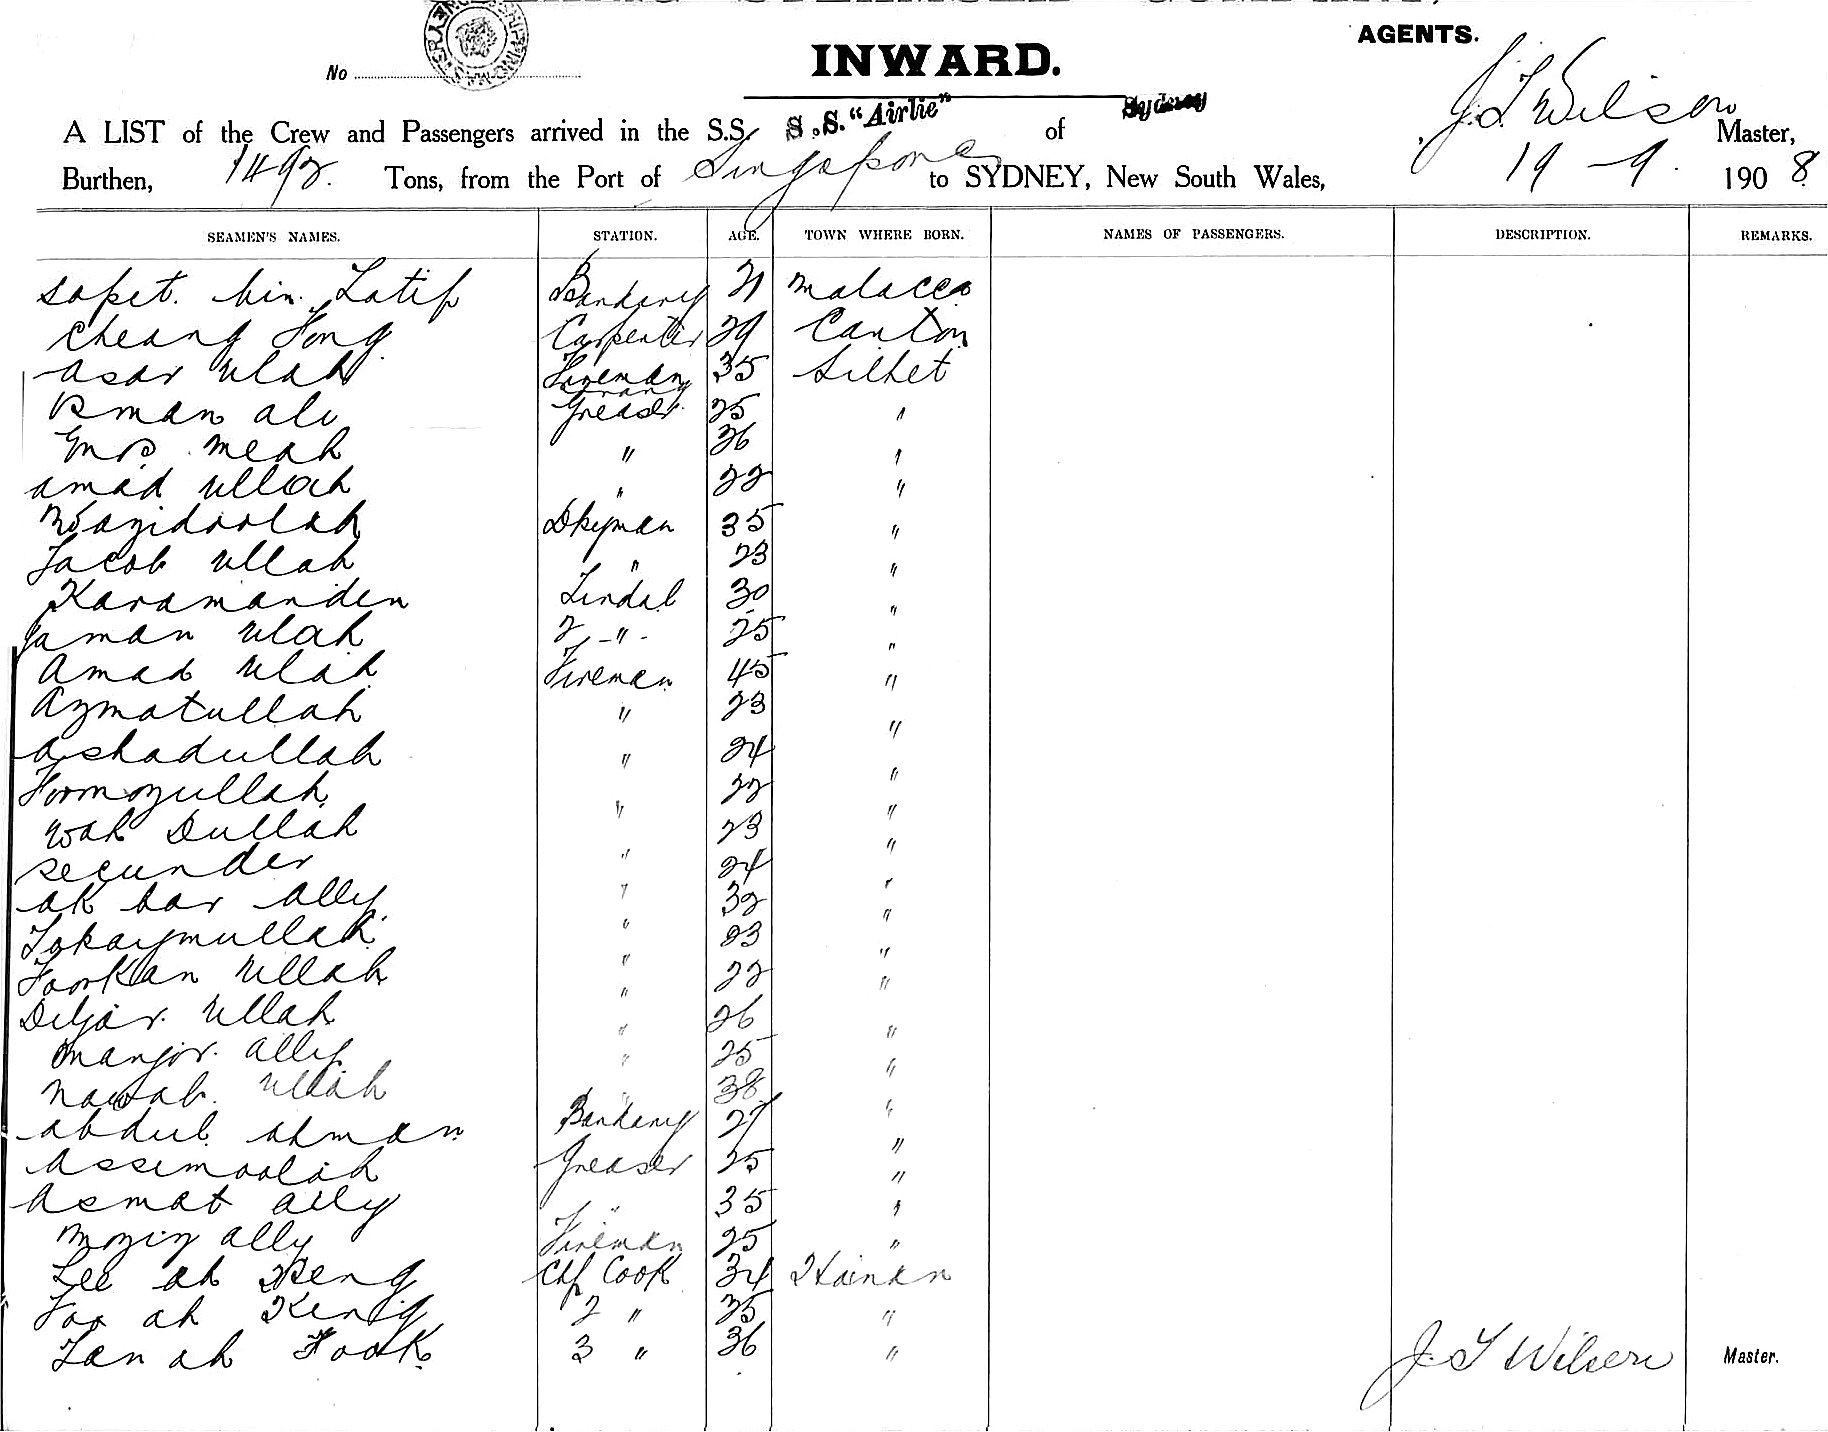 AGENTS.
No
INWARD.
A LIST of the Crew and Passengers arrived in the S.S. S.S. "Airlie" of Sydney J. T Wilson Master,
Burthen, 1492. Tons, from the Port of Singapore to SYDNEY, New South Wales, 19 - 9. 1908
SEAMEN'S NAMES. STATION. AGE. TOWN WHERE BORN. NAMES OF PASSENGERS. DESCRIPTION. REMARKS.
Sapet. bin. Latif Bandary 31 Malacca
Cheang Fong Carpenter 39 Canton
Asar Ulah Fireman Serang 35 Silhet
Osman Ali Greaser. 25 "
Meah " 36 "
Amad Ullah " 22 "
Wazidoolah Dkyman 35 "
Jacob Ullah " 23 "
Karamanden Tindal 30 "
Jaman Ulah 2 - " - 25 "
Amad Ulah Fireman 45 "
Azmatullah " 23 "
Ashadullah " 24 "
Formozullah " 22 "
Wah Dullah " 23 "
Secunder " 24 "
Ak bar Ally " 32 "
" 23 "
Foorkan Ullah " 22 "
Ullah " 26 "
Manjor. Ally " 25 "
Nawab. Ullah " 38 "
Abdul Ahman Bandary 27 "
Assimoolah Greaser 25 "
Asmat Ally " 35 "
Moziz Ally Fireman 25 "
Lee Ah Keng Chf Cook 34 Hainan
Foo Ah Keng 2 " 35 "
Tan Ah Fook 3 " 36 "
J. T Wilson Master.